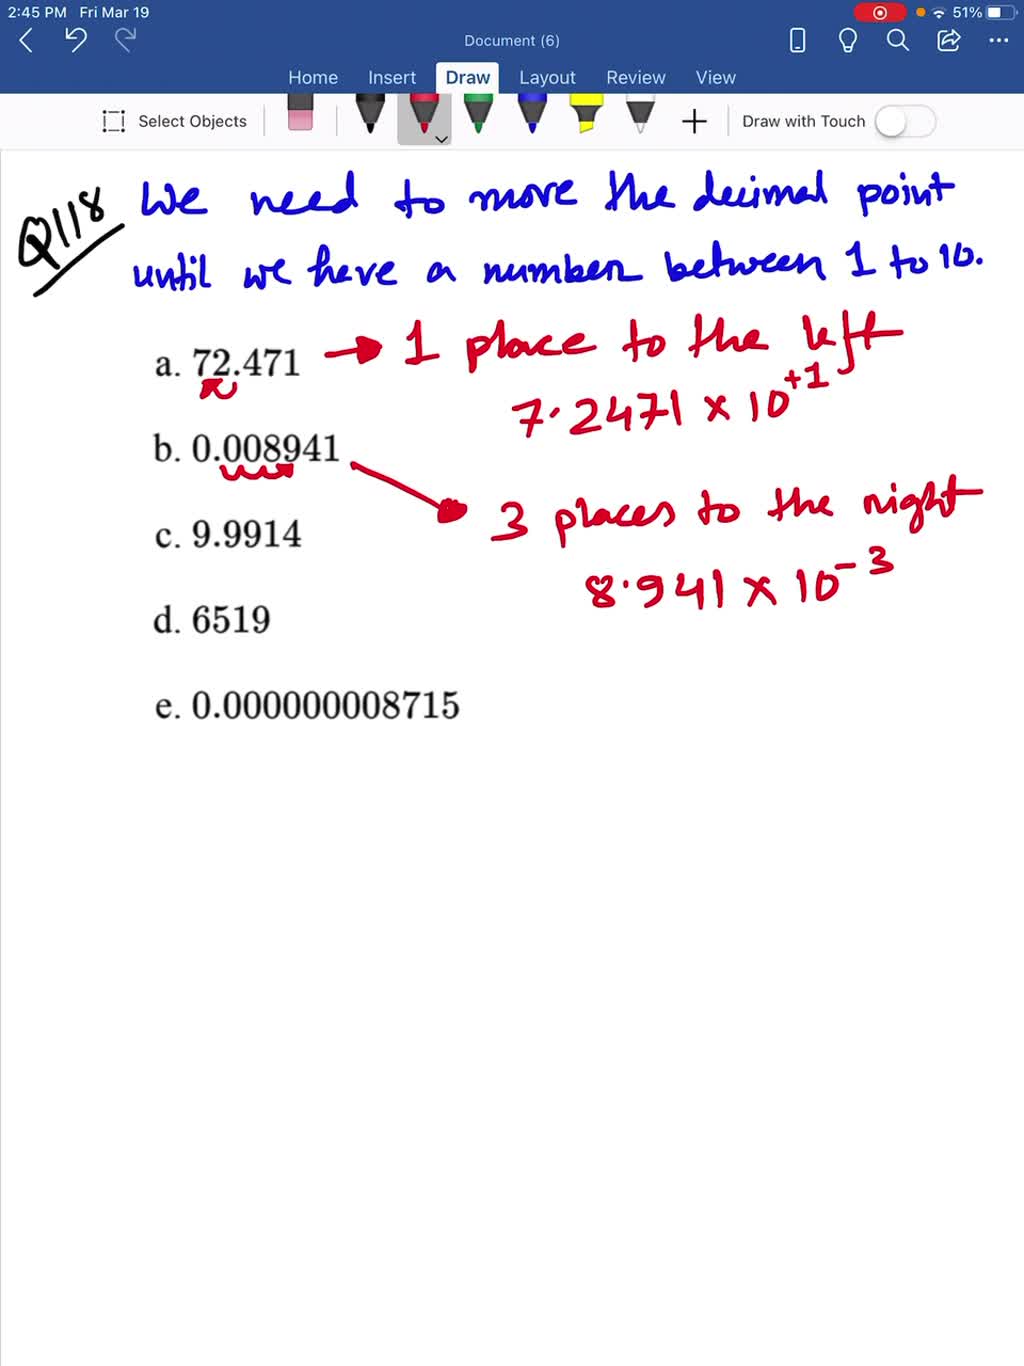 2:45 PM Fri Mar 19
51%
Document (6)
Home Insert Draw Layout Review View
Select Objects
Draw with Touch
Q118
We need to move the decimal point
until we have a number between 1 to 10.
a. 72.471 → 1 place to the left
7.2471 × 10+1
b. 0.008941
3 places to the right
8.941 × 10-3
c. 9.9914
d. 6519
e. 0.000000008715